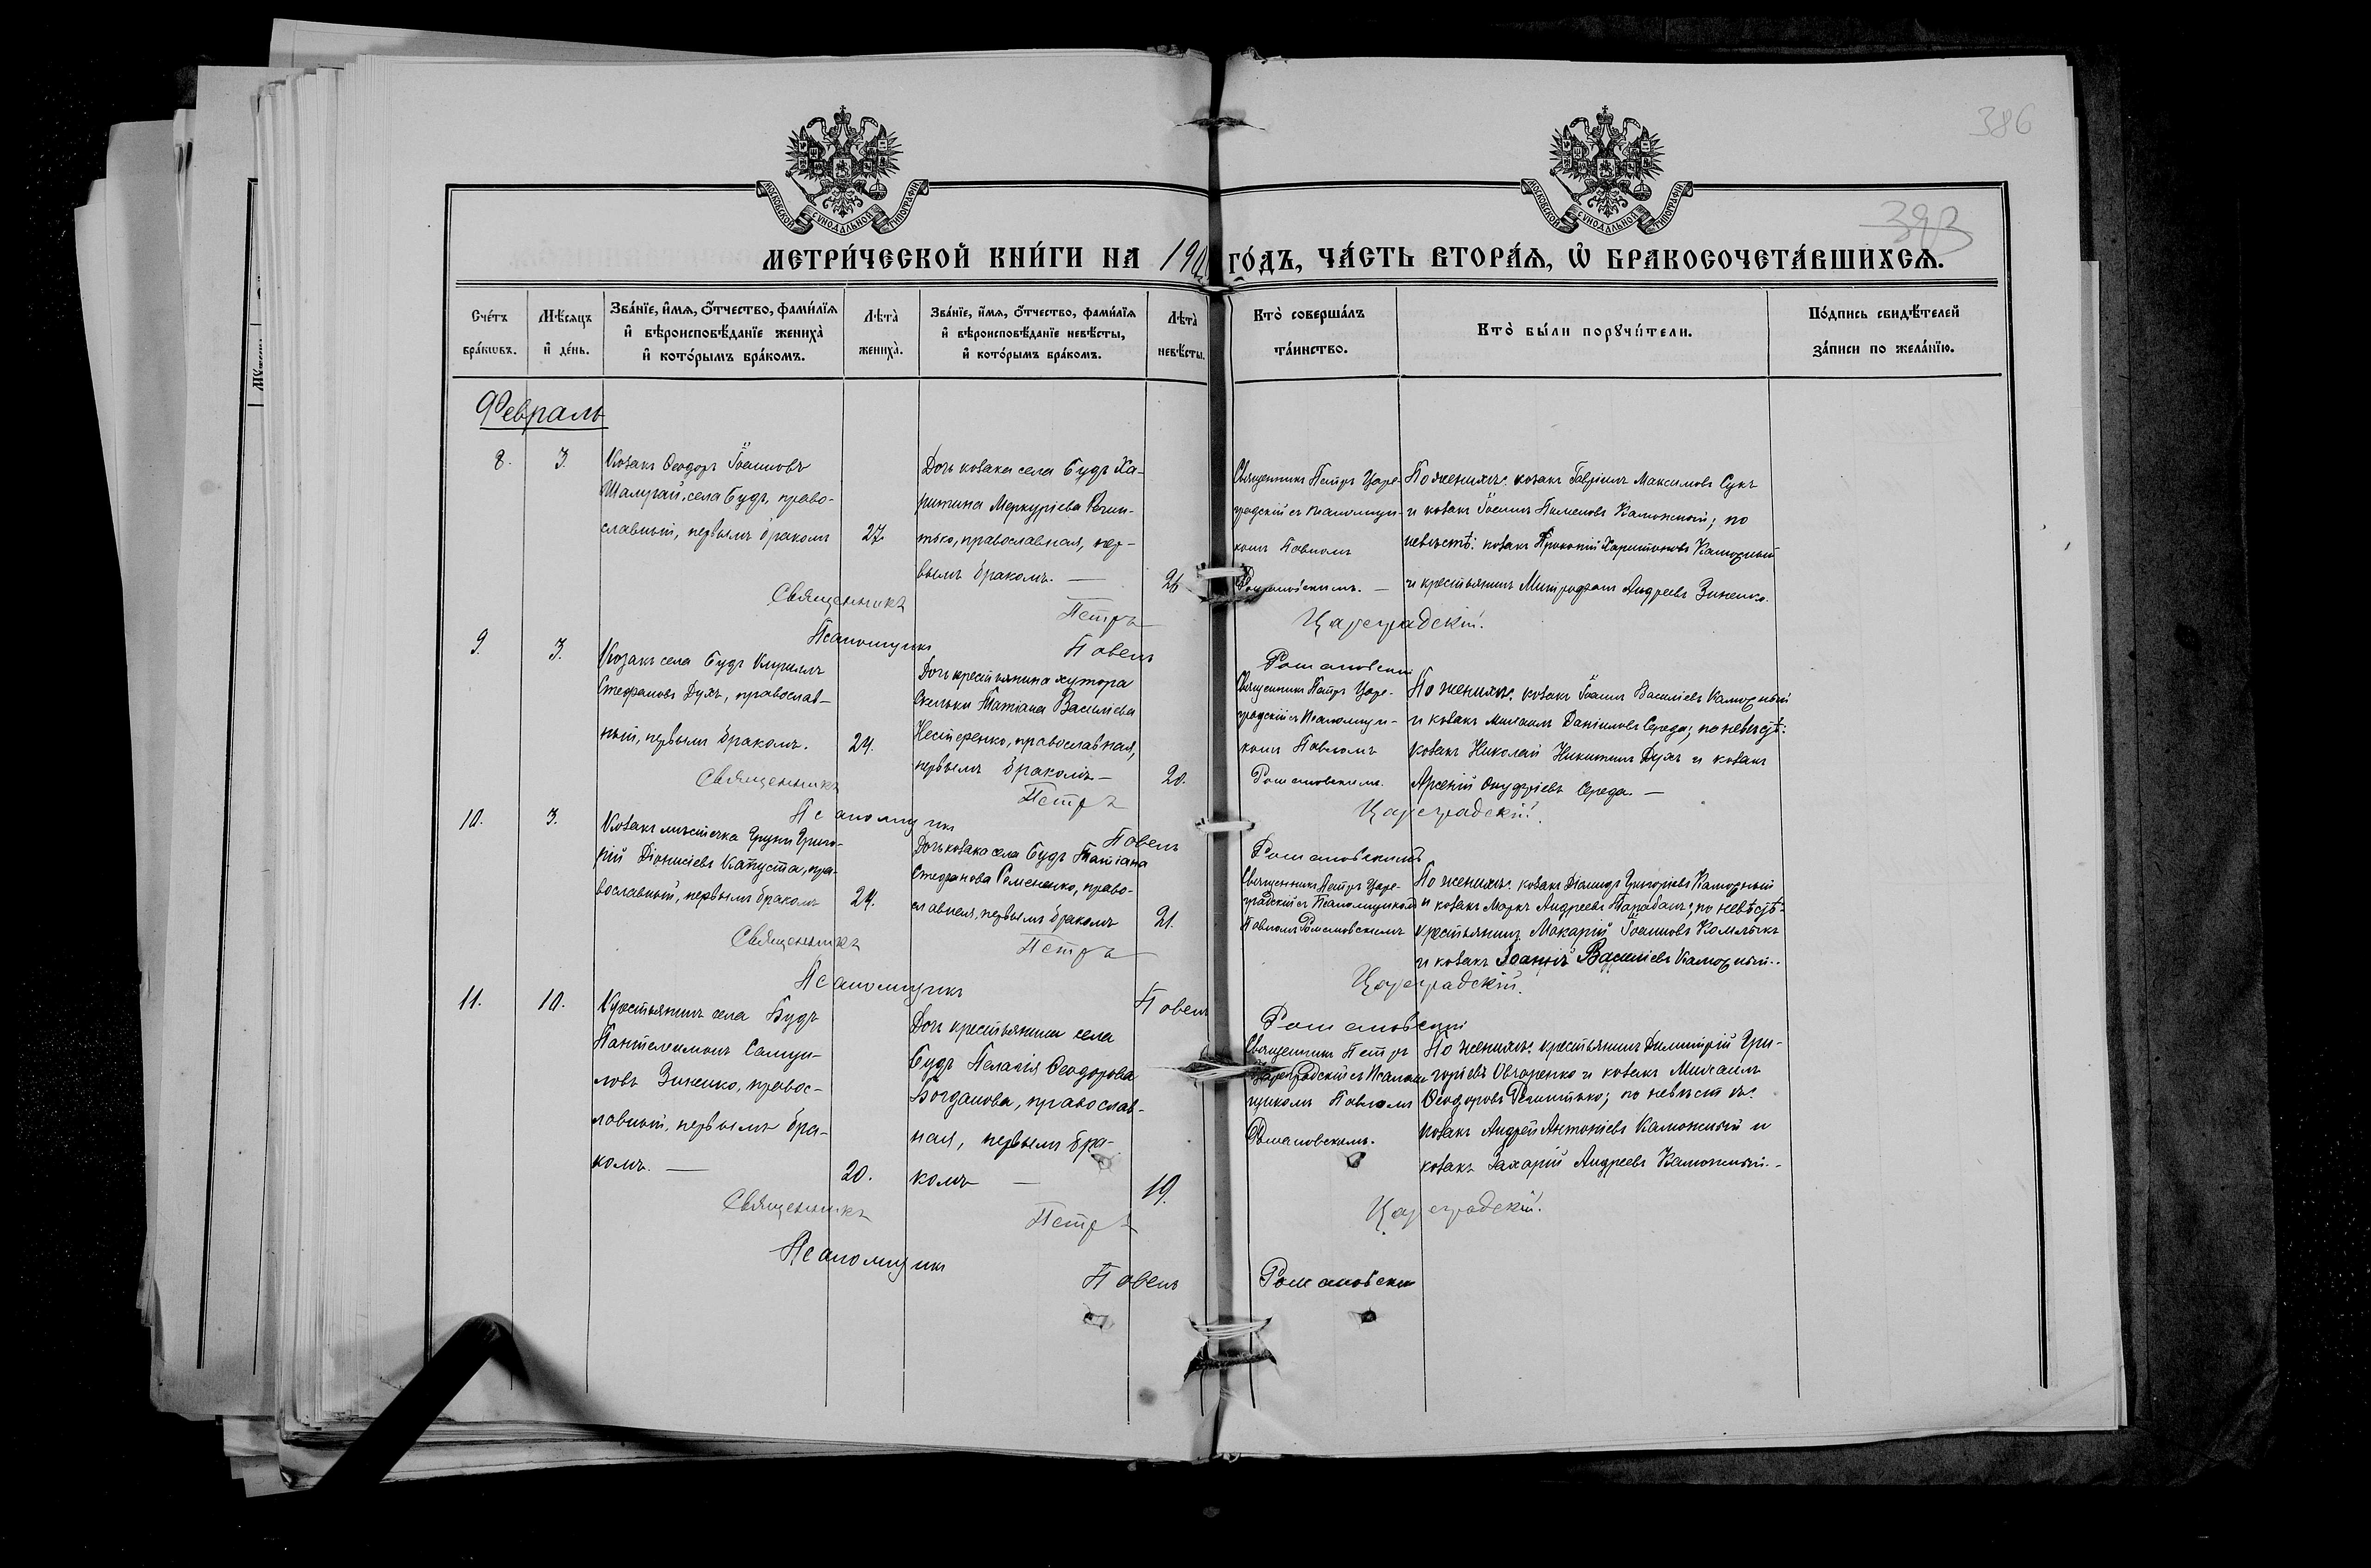 386
393
МОСКОВСКОЙ СѴНОДАЛЬНОЙ ТИПОГРАФІИ
МОСКОВСКОЙ СѴНОДАЛЬНОЙ ТИПОГРАФІИ
МЕТРИ́ЧЕСКОЙ КНИ́ГИ НА 190 ГО́ДЪ, ЧА́СТЬ ВТОРА́Я, Ѡ҆ БРАКОСОЧЕТА́ВШИХСЯ.
Сче́тъ
бра́кѡвъ.
Мѣ́сяцъ
и҆ де́нь.
Зва́нїе, и҆́мя, ѻ҆́тчество, фами́лїя
и҆ вѣроисповѣ́данїе жениха̀
и҆ кото́рымъ бра́комъ.
Лѣта̀
жениха̀.
Зва́нїе, и҆́мя, ѻ҆́тчество, фами́лїя
и҆ вѣроисповѣ́данїе невѣ́сты,
и҆ кото́рымъ бра́комъ.
Лѣта̀
невѣ́сты.
Кто̀ соверша́лъ
та́инство.
Кто̀ бы́ли порꙋчи́тели.
По́дпись свидѣ́телей
за́писи по жела́нїю.
Февраль
8.
3.
Козакъ Ѳеодоръ Іоанновъ
Шалугай, села Будъ, право-
славный, первымъ бракомъ
27.
Дочь козака села Будъ Ха-
ритина Меркуріева
православная, пер-
вымъ бракомъ. —
Священникъ Петръ Царе-
градскій съ псаломщи-
комъ Павломъ
Романовскимъ. —
По женихѣ: козакъ Гавріилъ Максимовъ Сукъ
и козакъ Іоаннъ Пименовъ Калюжный; по
невѣстѣ: козакъ Прокопій Харитоновъ Калюжный
и крестьянинъ Митрофанъ Андреевъ Зиненко.
Священникъ Петръ Цареградскій.
Псаломщикъ Павелъ Романовскій
9.
3.
Козакъ села Будъ Кириллъ
Стефановъ Духъ, православ-
ный, первымъ бракомъ.
24.
Дочь крестьянина хутора
Татіана Василіева
Нестеренко, православная,
первымъ бракомъ —
20.
Священникъ Петръ Царе-
градскій съ псаломщи-
комъ Павломъ
Романовскимъ.
По женихѣ: козакъ Іоаннъ Василіевъ Калюжный
и козакъ Михаилъ Даніиловъ Середа; по невѣстѣ:
козакъ Николай Никитинъ Духъ и козакъ
Арсеній Онуфріевъ Середа. —
Священникъ Петръ Цареградскій.
Псаломщикъ Павелъ Романовскимъ
10.
3.
Козакъ мѣстечка Груни Григо-
рій Діонисіевъ Капуста, пра-
вославный, первымъ бракомъ
24.
Дочь козака села Будъ Татіана
Стефанова Семененко, право-
славная, первымъ бракомъ
21.
Священникъ Петръ Царе-
градскій съ псаломщикомъ
Павломъ Романовскимъ
По женихѣ: козакъ Діамидъ Григоріевъ Калюжный
и козакъ Маркъ Андреевъ Барабашъ; по невѣстѣ-
крестьянинъ Макарій Іоанновъ
и козакъ Іоаннъ Василіевъ Калюжный..
Священникъ Петръ Цареградскій.
Псаломщикъ Павелъ Романовскій
11.
10.
Крестьянинъ села Будъ
Пантелеимонъ Самуи-
ловъ Зиненко, правос-
лавный, первымъ бра-
комъ. —
20.
Дочь крестьянина села
Будъ Пелагія Ѳеодорова
Богданова, православ-
ная, первымъ бра-
комъ —
19.
Священникъ Петръ
Цареградскій съ псалом-
щикомъ Павломъ
Романовскимъ.
По женихѣ: крестьянинъ Димитрій Гри-
горіевъ Овчаренко и козакъ Михаилъ
Ѳеодоровъ; по невѣстѣ:
козакъ Андрей Антоніевъ Калюжный и
козакъ Захарій Андреевъ Калюжный.-
Священникъ Петръ Цареградскій.
Псаломщикъ Павелъ Романовскій